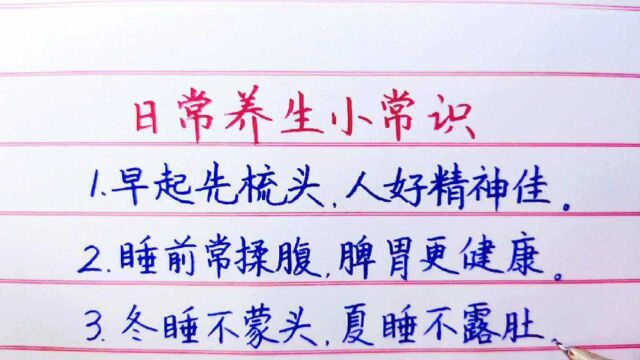 日常养生小常识
1.早起先梳头,人好精神佳。
2.睡前常揉腹,脾胃更健康。
3.冬睡不蒙头,夏睡不露肚